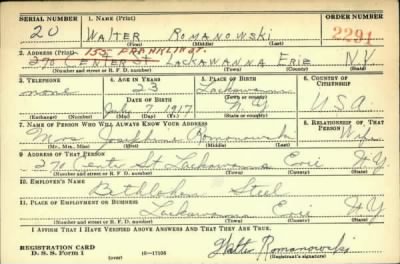 SERIAL NUMBER 1. NAME (Print) ORDER NUMBER
20 WALTER ROMANOWSKI 2291
(First) (Middle) (Last)
2. ADDRESS (Print) 155 FRANKLIN ST.
270 CENTER ST LACKAWANNA ERIE N.Y.
(Number and street or R. F. D. number) (Town) (County) (State)
3. TELEPHONE 4. AGE IN YEARS 5. PLACE OF BIRTH 6. COUNTRY OF CITIZENSHIP
none 23 Lackawanna
DATE OF BIRTH (Town or county)
July 7 1917 N Y U.S.A.
(Exchange) (Number) (Mo.) (Day) (Yr.) (State or country)
7. NAME OF PERSON WHO WILL ALWAYS KNOW YOUR ADDRESS 8. RELATIONSHIP OF THAT PERSON
Mrs Josephine Romanowski Wife
(Mr., Mrs., Miss) (First) (Middle) (Last)
9. ADDRESS OF THAT PERSON
270 Center St Lackawanna Erie N.Y.
(Number and street or R. F. D. number) (Town) (County) (State)
10. EMPLOYER'S NAME
Bethlehem Steel
11. PLACE OF EMPLOYMENT OR BUSINESS
Lackawanna Erie N.Y.
(Number and street or R. F. D. number) (Town) (County) (State)
I AFFIRM THAT I HAVE VERIFIED ABOVE ANSWERS AND THAT THEY ARE TRUE.
REGISTRATION CARD
D. S. S. Form 1 (over) 16—17105 Walter Romanowski
(Registrant's signature)